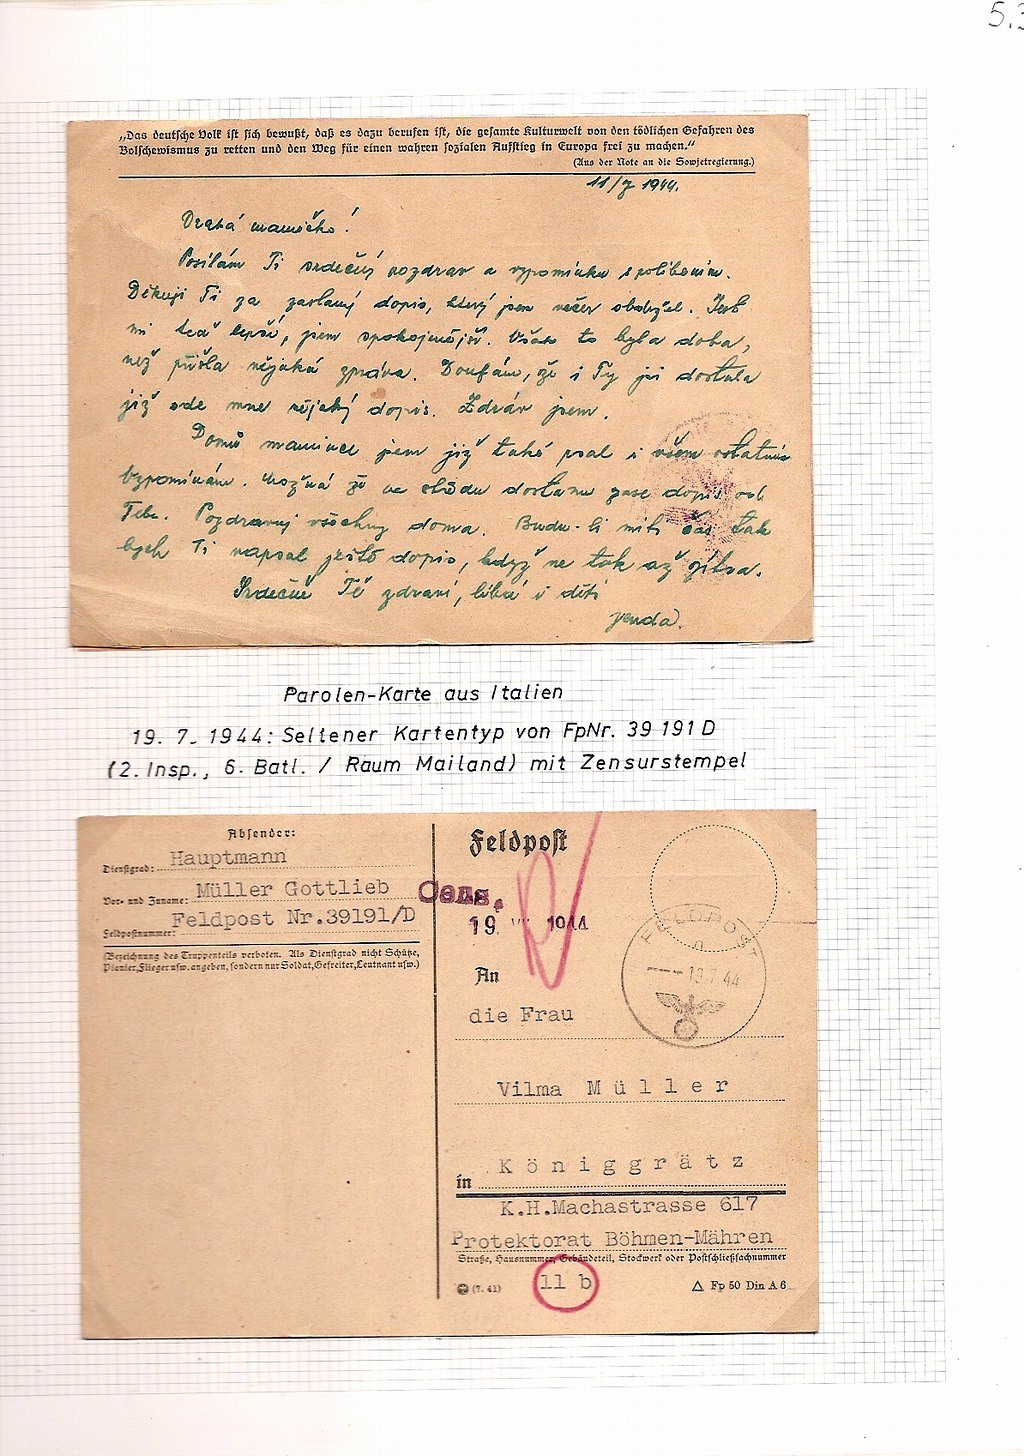 5.3
„Das deutsche Volk ist sich bewußt, daß es dazu berufen ist, die gesamte Kulturwelt von den tödlichen Gefahren des
Bolschewismus zu retten und den Weg für einen wahren sozialen Aufstieg in Europa frei zu machen.“
(Aus der Note an die Sowjetregierung.)
11/7 1944.
Drahá mamičko!
Posílám Ti srdečný pozdrav a vzpomínku s políbením.
Děkuji Ti za zaslaný dopis, který jsem večer obdržel. Jest
mi teď lepší, jsem spokojenější. Však to byla doba,
než přišla nějaká zpráva. Doufám, že i Ty jsi dostala
již ode mne nějaký dopis. Zdráv jsem.
Domů mamince jsem již také psal i všem ostatním
vzpomínám. Možná že ve středu dostanu zase dopis od
Tebe. Pozdravuj všechny doma. Budu-li míti čas tak
bych Ti napsal ještě dopis, když ne tak až zítra.
Srdečně Tě zdraví, líbá i děti
Jenda.
Parolen-Karte aus Italien
19. 7. 1944: Seltener Kartentyp von FpNr. 39 191 D
(2. Insp., 6. Batl. / Raum Mailand) mit Zensurstempel
Absender:
Dienstgrad: Hauptmann
Vor- und Zuname: Müller Gottlieb
Feldpostnummer: Feldpost Nr.39191/D
(Bezeichnung des Truppenteils verboten. Als Dienstgrad nicht Schütze,
Pionier, Flieger usw. angeben, sondern nur Soldat, Gefreiter, Leutnant usw.)
Feldpost
Cens.
19 VII 1944
FELDPOST
n
--- 19.7.44
An
die Frau
Vilma Müller
in Königgrätz
K.H.Machastrasse 617
Protektorat Böhmen-Mähren
Straße, Hausnummer, Gebäudeteil, Stockwerk oder Postschließfachnummer
11 b
(7. 41)
Fp 50 Din A 6